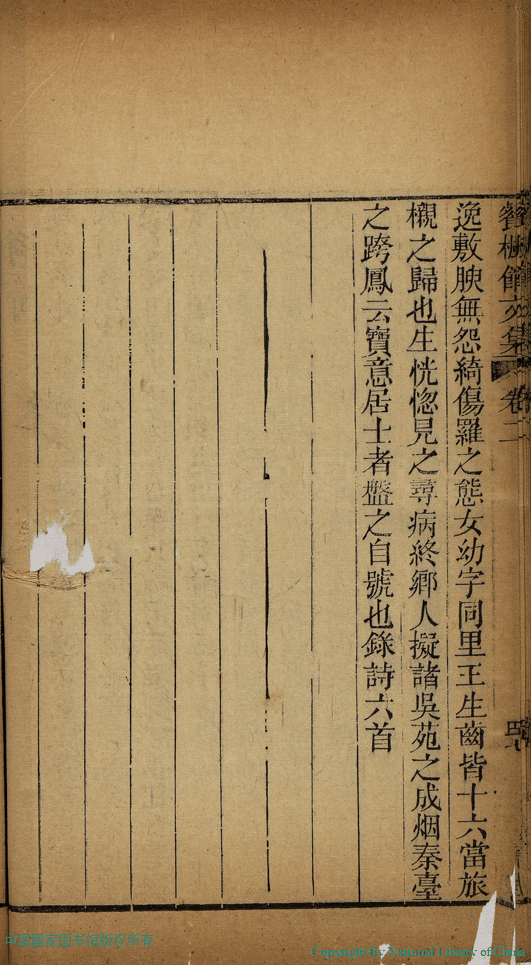 餐櫻館文集 卷二
逸敷腴無怨綺傷羅之態女幼字同里王生齒皆十六當旅
櫬之歸也生恍惚見之尋病終鄉人擬諸吳苑之成烟秦臺
之跨鳳云寶意居士者盤之自號也錄詩六首
中国国家图书馆版权所有
Copyright by National Library of China